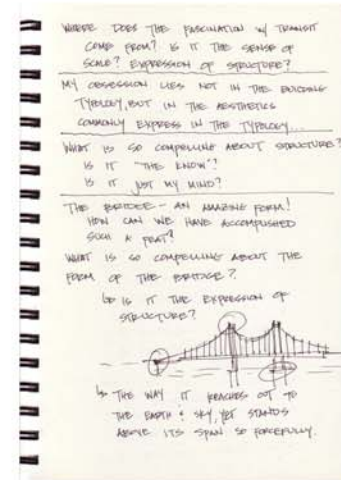 WHERE DOES THE FASCINATION W/ TRANSIT
COME FROM? IS IT THE SENSE OF
SCALE? EXPRESSION OF STRUCTURE?
MY OBSESSION LIES NOT IN THE BUILDING
TYPOLOGY, BUT IN THE AESTHETICS
COMMONLY EXPRESS IN THE TYPOLOGY...
WHAT IS SO COMPELLING ABOUT STRUCTURE?
IS IT "THE KNOW"?
IS IT JUST MY MIND?
THE BRIDGE - AN AMAZING FORM!
HOW CAN WE HAVE ACCOMPLISHED
SUCH A FEAT?
WHAT IS SO COMPELLING ABOUT THE
FORM OF THE BRIDGE?
↳ IS IT THE EXPRESSION OF
STRUCTURE?
↳ THE WAY IT REACHES OUT TO
THE EARTH & SKY, YET STANDS
ABOVE ITS SPAN SO FORCEFULLY.